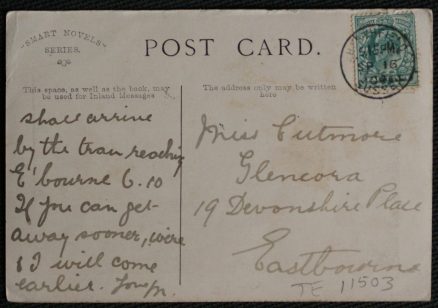 "SMART NOVELS"
SERIES.
POST CARD.
This space, as well as the back, may
be used for Inland Messages
The address only may be written
here
shall arrive
by the train reaching
E'bourne 6.10
If you can get
away sooner, wire
& I will come
earlier.
Miss Cutmore
Glencora
19 Devonshire Place
Eastbourne
TE 11503